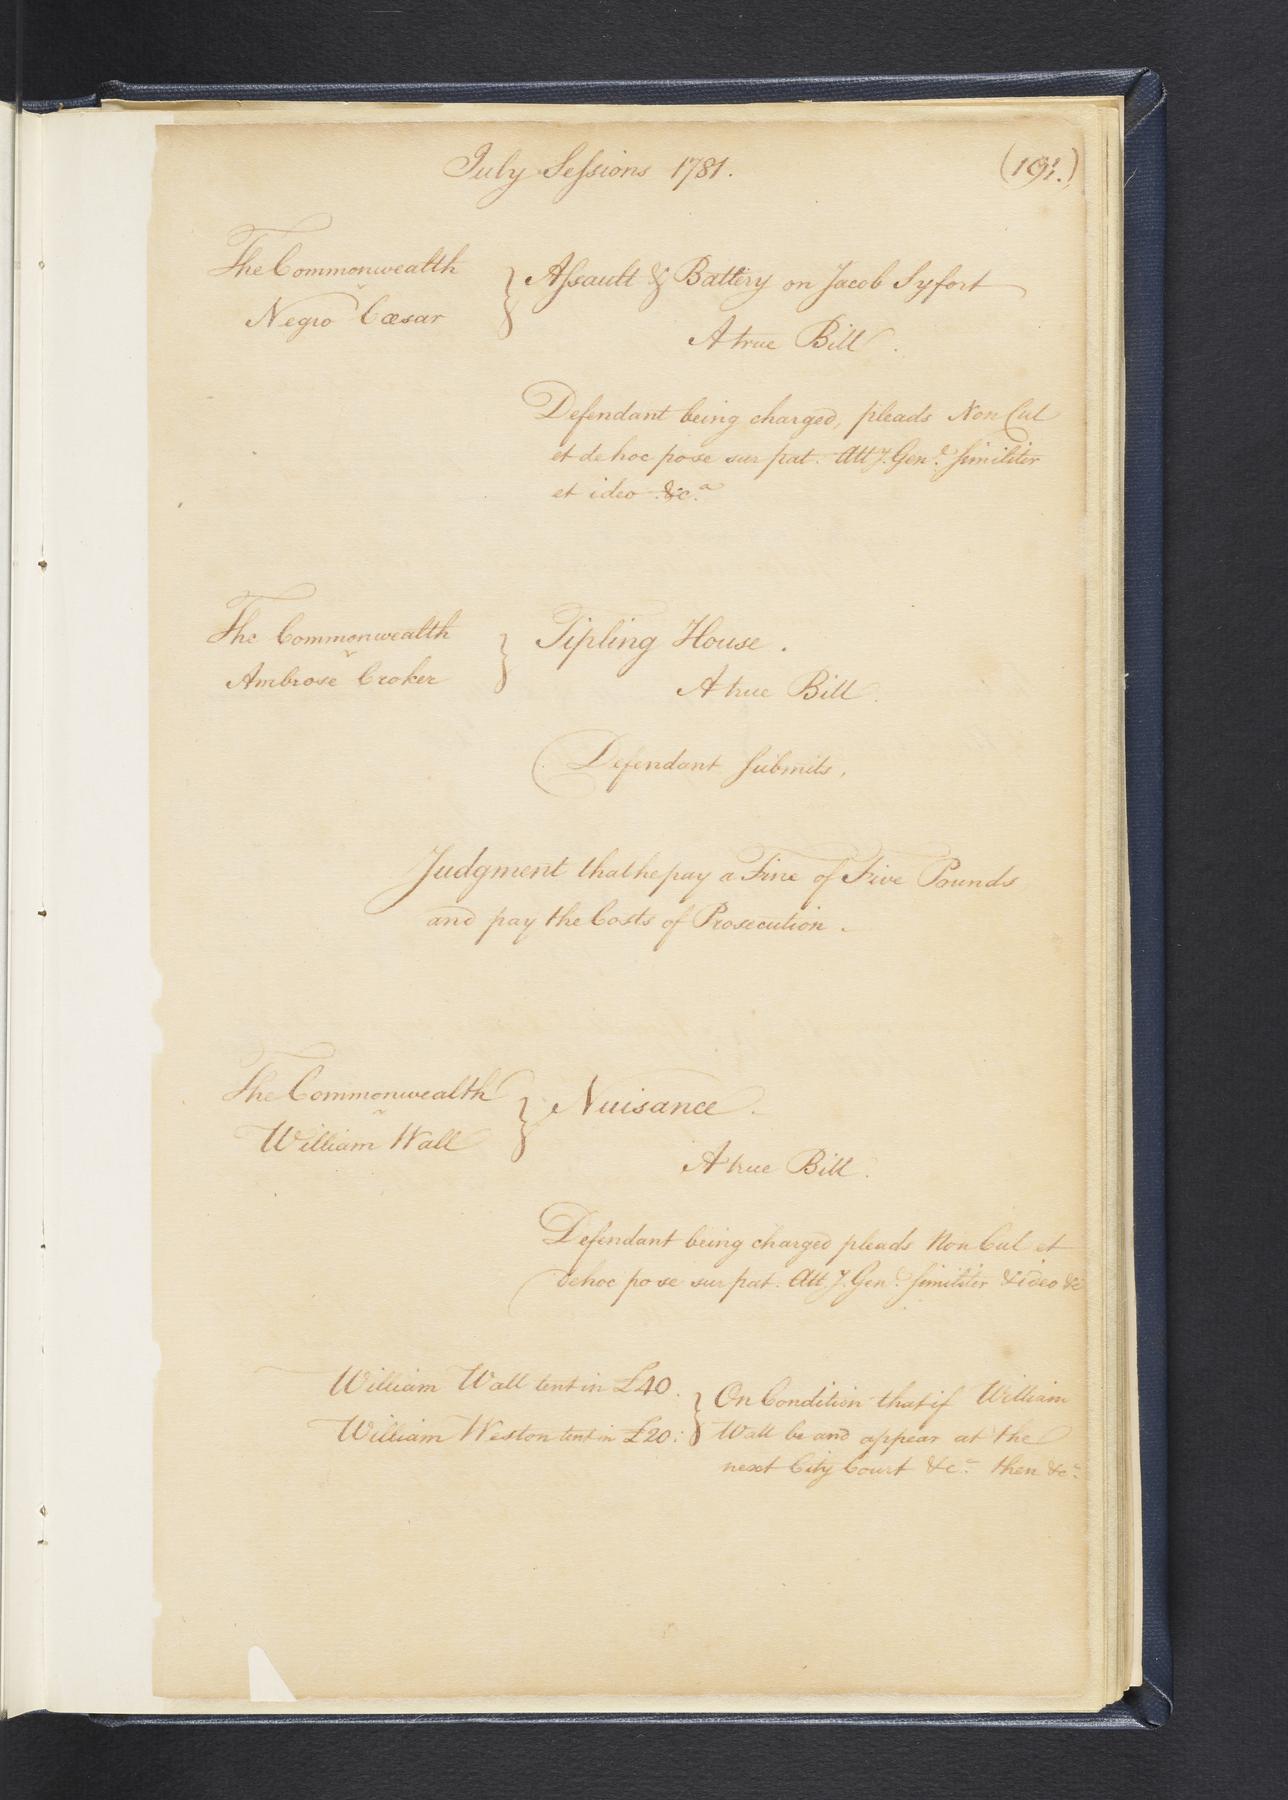 July Sessions 1781.
(191.)
The Commonwealth
v
Negro Cæsar
} Assault & Battery on Jacob Syfort
A true Bill.
Defendant being charged, pleads Non Cul
et de hoc pose sur pat. Atty. Genl. similiter
et ideo &ca
The Commonwealth
v
Ambrose Croker
} Tipling House.
A true Bill.
Defendant submits,
Judgment that he pay a Fine of Five Pounds
and pay the Costs of Prosecution.
The Commonwealth
v
William Wall
} Nuisance.
A true Bill.
Defendant being charged pleads Non Cul et
dehoc pose sur pat. Atty. Genl. similiter & ideo &c
William Wall tent in £40.
William Weston tent in £20:
} On Condition that if William
Wall be and appear at the
next City Court &ca. then &ca.